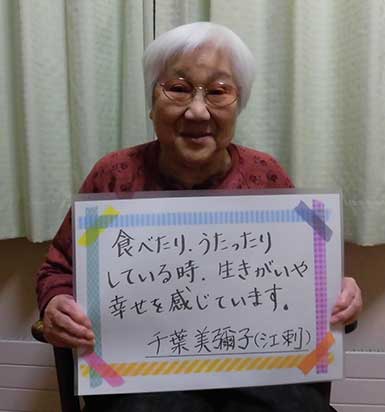 食べたり、うたったり
している時、生きがいや
幸せを感じています。
千葉美彌子(江刺)